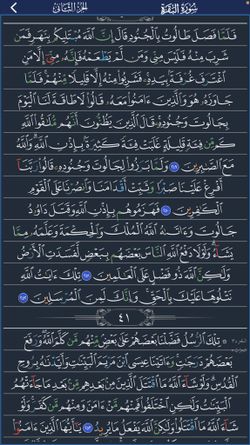 سُورَةُ البَقَرَةِ
الجُزءُ الثَّانِي
فَلَمَّا فَصَلَ طَالُوتُ بِالْجُنُودِ قَالَ إِنَّ اللَّهَ مُبْتَلِيكُم بِنَهَرٍ فَمَن
شَرِبَ مِنْهُ فَلَيْسَ مِنِّي وَمَن لَّمْ يَطْعَمْهُ فَإِنَّهُ مِنِّي إِلَّا مَنِ
اغْتَرَفَ غُرْفَةً بِيَدِهِ فَشَرِبُوا مِنْهُ إِلَّا قَلِيلًا مِّنْهُمْ فَلَمَّا
جَاوَزَهُ هُوَ وَالَّذِينَ آمَنُوا مَعَهُ قَالُوا لَا طَاقَةَ لَنَا الْيَوْمَ
بِجَالُوتَ وَجُنُودِهِ قَالَ الَّذِينَ يَظُنُّونَ أَنَّهُم مُّلَاقُو اللَّهِ
كَم مِّن فِئَةٍ قَلِيلَةٍ غَلَبَتْ فِئَةً كَثِيرَةً بِإِذْنِ اللَّهِ وَاللَّهُ
مَعَ الصَّابِرِينَ ٢٤٩ وَلَمَّا بَرَزُوا لِجَالُوتَ وَجُنُودِهِ قَالُوا رَبَّنَا
أَفْرِغْ عَلَيْنَا صَبْرًا وَثَبِّتْ أَقْدَامَنَا وَانصُرْنَا عَلَى الْقَوْمِ
الْكَافِرِينَ ٢٥٠ فَهَزَمُوهُم بِإِذْنِ اللَّهِ وَقَتَلَ دَاوُودُ
جَالُوتَ وَآتَاهُ اللَّهُ الْمُلْكَ وَالْحِكْمَةَ وَعَلَّمَهُ مِمَّا
يَشَاءُ وَلَوْلَا دَفْعُ اللَّهِ النَّاسَ بَعْضَهُم بِبَعْضٍ لَّفَسَدَتِ الْأَرْضُ
وَلَٰكِنَّ اللَّهَ ذُو فَضْلٍ عَلَى الْعَالَمِينَ ٢٥١ تِلْكَ آيَاتُ اللَّهِ
نَتْلُوهَا عَلَيْكَ بِالْحَقِّ وَإِنَّكَ لَمِنَ الْمُرْسَلِينَ ٢٥٢
٤١
تِلْكَ الرُّسُلُ فَضَّلْنَا بَعْضَهُمْ عَلَىٰ بَعْضٍ مِّنْهُم مَّن كَلَّمَ اللَّهُ وَرَفَعَ
بَعْضَهُمْ دَرَجَاتٍ وَآتَيْنَا عِيسَى ابْنَ مَرْيَمَ الْبَيِّنَاتِ وَأَيَّدْنَاهُ بِرُوحِ
الْقُدُسِ وَلَوْ شَاءَ اللَّهُ مَا اقْتَتَلَ الَّذِينَ مِن بَعْدِهِم مِّن بَعْدِ مَا جَاءَتْهُمُ
الْبَيِّنَاتُ وَلَٰكِنِ اخْتَلَفُوا فَمِنْهُم مَّنْ آمَنَ وَمِنْهُم مَّن كَفَرَ وَلَوْ
شَاءَ اللَّهُ مَا اقْتَتَلُوا وَلَٰكِنَّ اللَّهَ يَفْعَلُ مَا يُرِيدُ ٢٥٣ يَا أَيُّهَا الَّذِينَ آمَنُوا